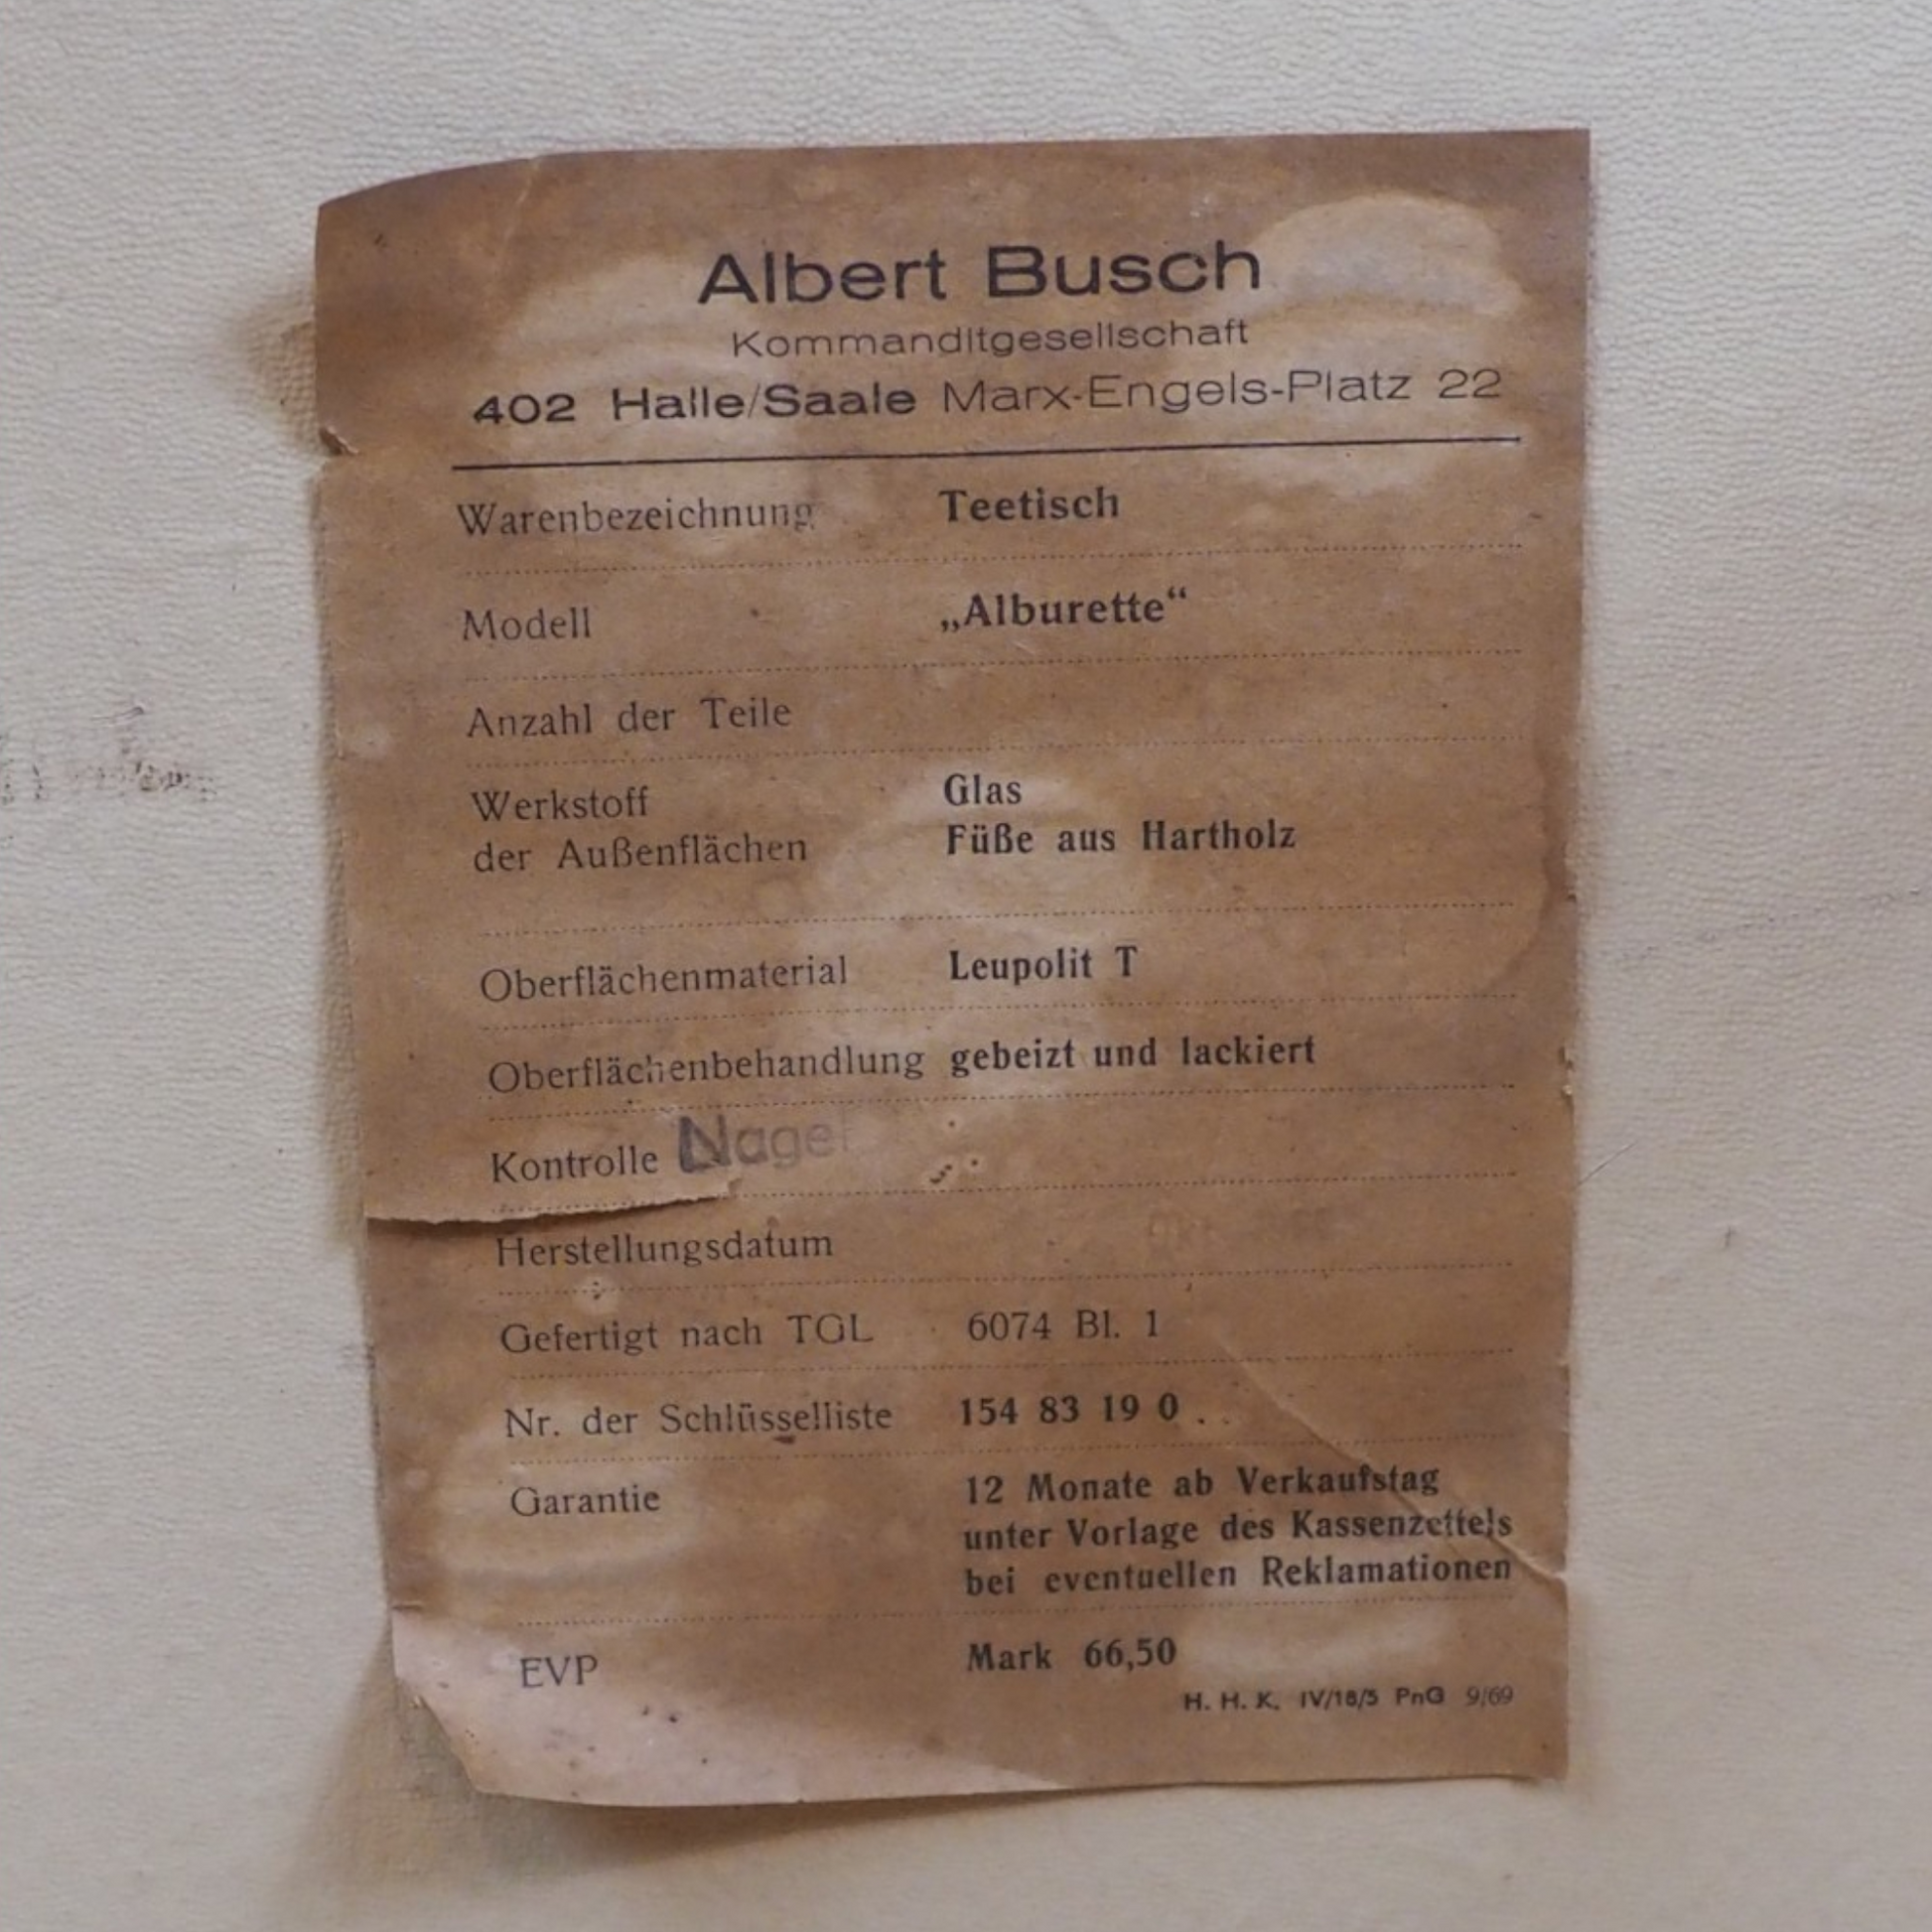 Albert Busch
Kommanditgesellschaft
402 Halle/Saale Marx-Engels-Platz 22
Warenbezeichnung Teetisch
Modell „Alburette“
Anzahl der Teile
Werkstoff Glas
der Außenflächen Füße aus Hartholz
Oberflächenmaterial Leupolit T
Oberflächenbehandlung gebeizt und lackiert
Kontrolle Nagel
Herstellungsdatum
Gefertigt nach TGL 6074 Bl. 1
Nr. der Schlüsselliste 154 83 19 0 . .
Garantie 12 Monate ab Verkaufstag
unter Vorlage des Kassenzettels
bei eventuellen Reklamationen
EVP Mark 66,50
H. H. K. IV/18/5 PnG 9/69